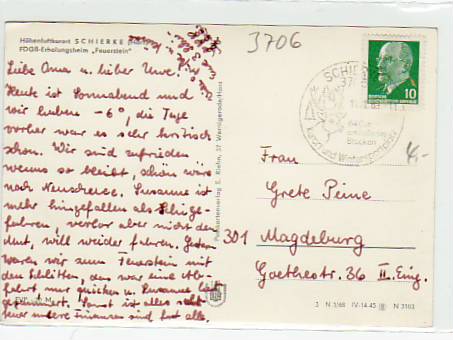 Höhenluftkurort SCHIERKE
FDGB-Erholungsheim „Feuerstein"
3706
Liebe Oma u. lieber Uwe!
Heute ist Sonnabend und
wir haben -6°, die Tage
vorher war es sehr
schön. Wir sind zufrieden
wenns so bleibt, schön wärs
noch Neuschnee. Susanne ist
mehr hingefallen als Ski ge-
fahren, verlor aber nicht den
Mut, will wieder fahren. Gestern
waren wir zum Feuerstein mit
den Schlitten, das war eine Ab-
fahrt, nur quicken u. Susanne
Sonst ist alles sehr
unsere Finanzen sind fast alle.
EVP M
Postkartenverlag E. Riehn, 37 Wernigerode/Harz
SCHIERKE
37
640 m
Brocken
Kurort und Wintersportplatz
10
DEUTSCHE DEMOKRATISCHE REPUBLIK
Frau
Grete Peine
301 Magdeburg
Goethestr. 36 II. Eing.
3 N 1/68 IV-14-45 N 3103